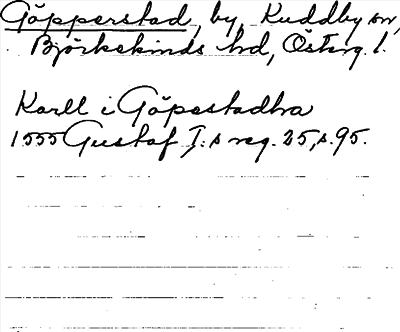 Göpperstad, by, Kuddby sn,
Björkekinds hd, Österg. l.
Karll i Göpestadha
1555 Gustaf I:s reg. 25, s. 95.